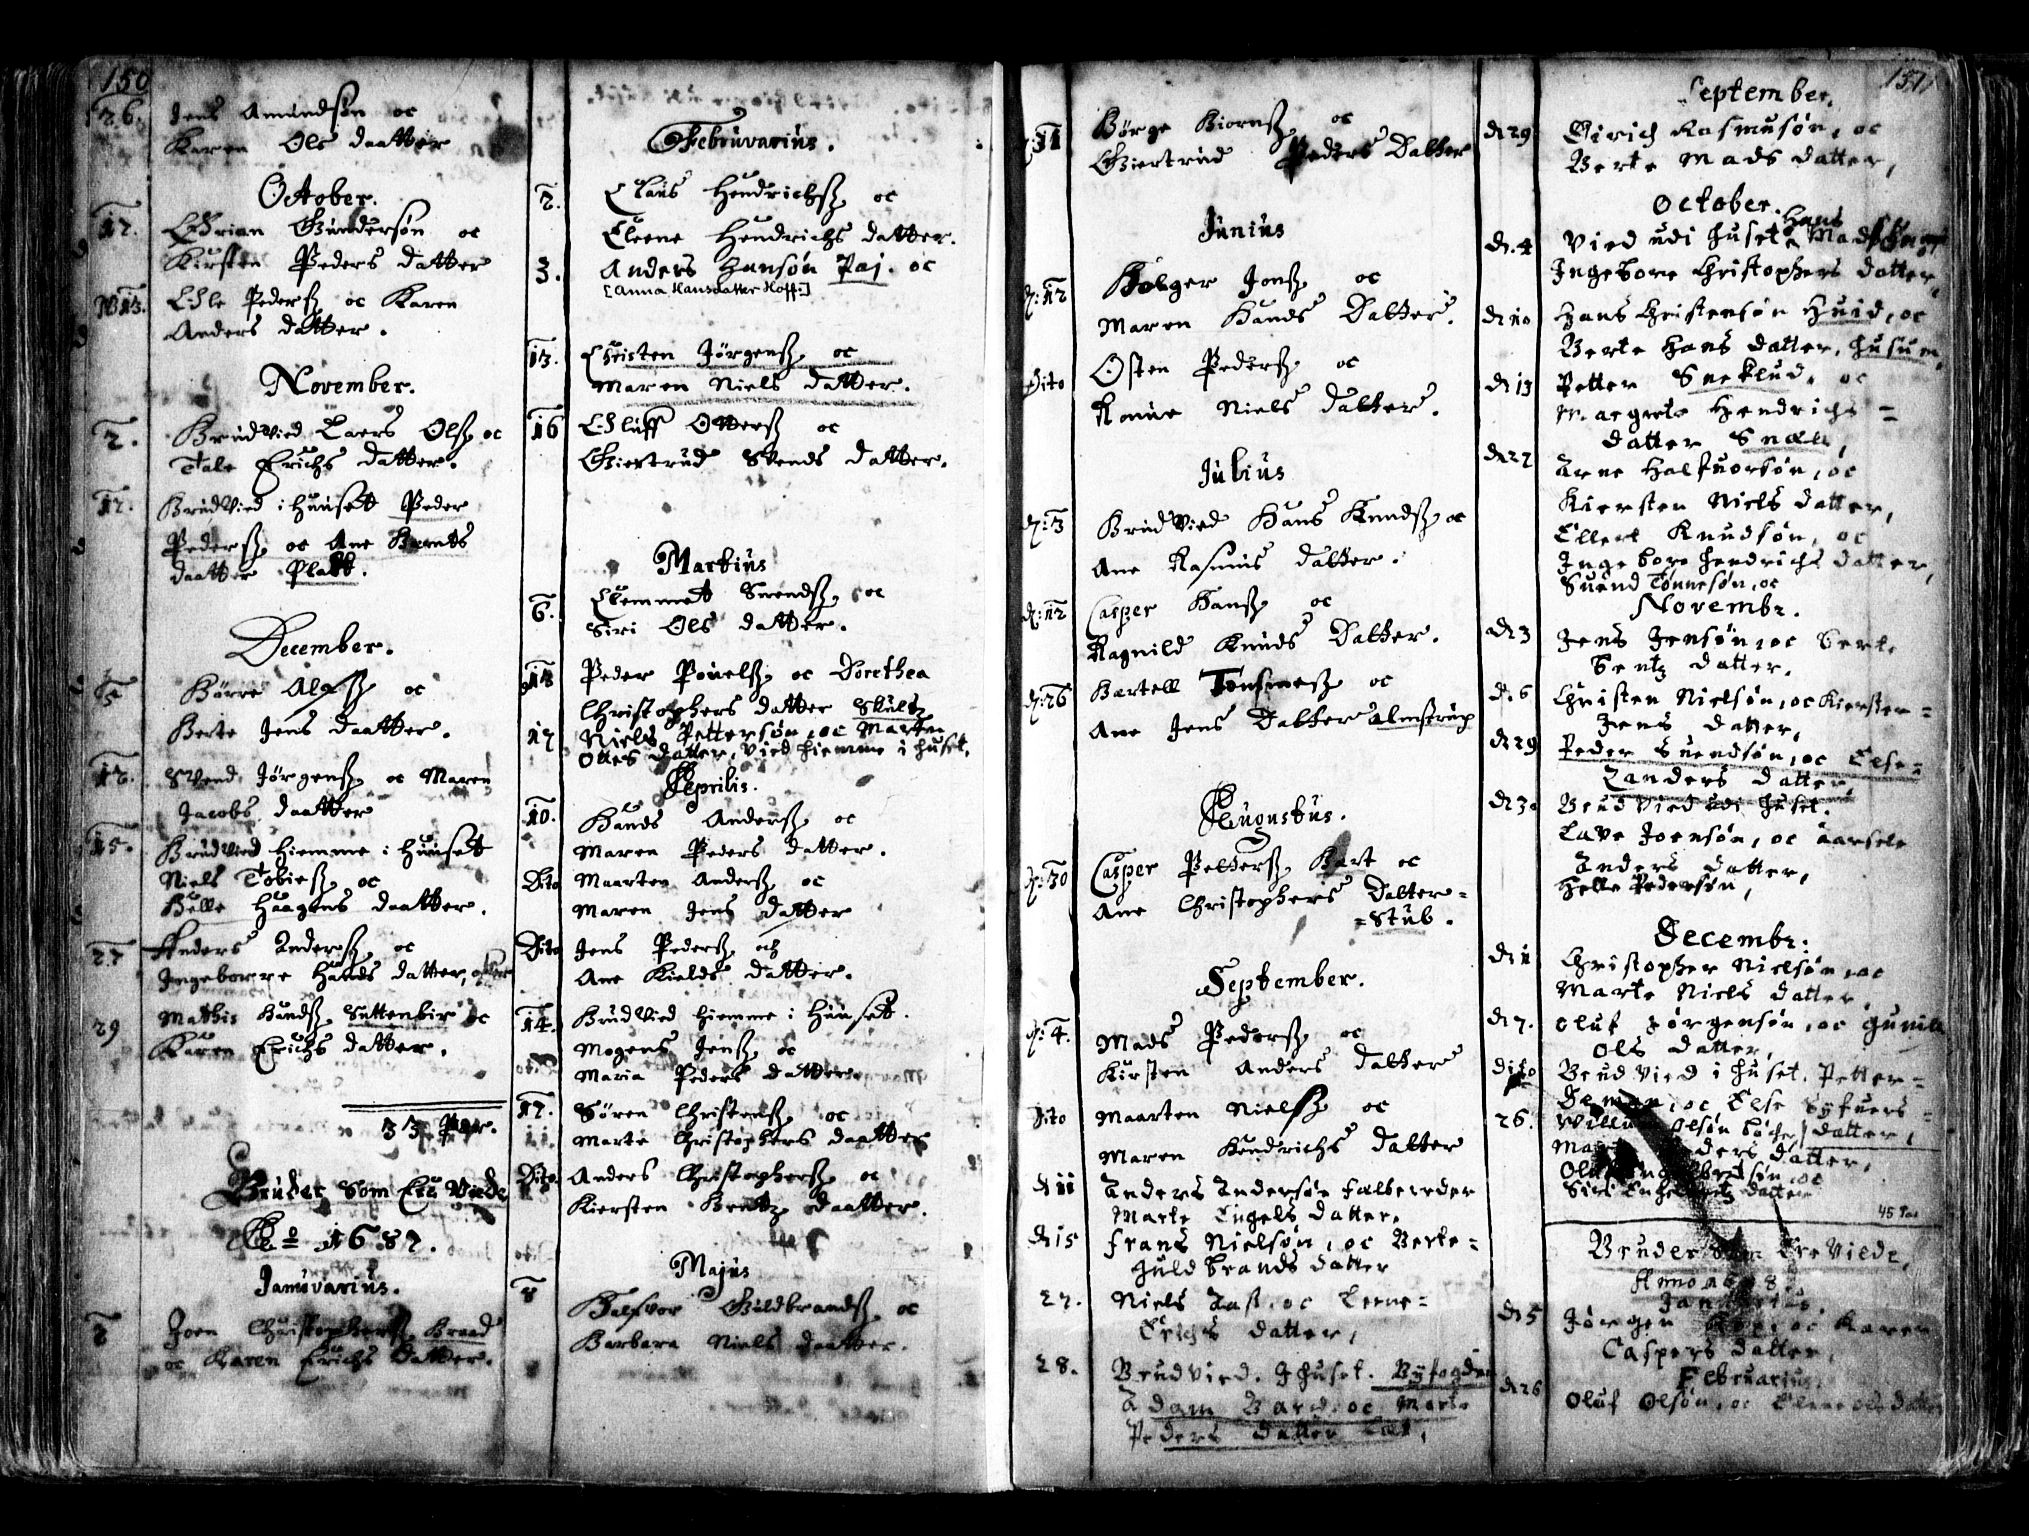 150
26. Jens Amundsøn oc
Karen Ols daatter
October.
12. Gundersøn oc
Kirsten Peders datter
13. Ole Pederß. oc Karen
Anders datter.
November.
2. Brudvied Laers Olß. oc
Tale Erichs datter.
12. Brudvied i Huuset Peder
Pederß. oc Ane Berents
daatter Platt.
December.
5 Børre Olfß. oc
Berte Jens daatter.
12. Svend Jørgenß. oc Maren
Jacobs daatter
15. Brudvied hiemme i Huuset
Niels Tobieß. oc
Helle Haagens daatter.
27 Anders Anderß. oc
Ingeborre Hands datter,
29 Mathis Handß. Suttenbir oc
Karen Erichs datter.
33 Par.
Bruder Som Ere Viede
Ao 1687.
Januvarius.
2 Joen Christopherß. Braad
oc Karen Erichs datter.
Februvarius.
2. Claus Hendrichß. oc
Eleene Hendrichs datter.
3. Anders Hansøn Paj. oc
[Anna Hansdatter Hoff:]
13. Christen Jørgenß. oc
Maren Niels datter.
16 Oluff Otterß. oc
Giertrud Svends datter.
Martius
6. Clemmet Svendß. oc
Siri Ols datter.
13 Peder Povelß. oc Dorethea
Christophers datter Skultz
17 Niels Pettersøn, oc Marten
Ottes datter, vied hiemme i huset.
Aprilis.
10. Hands Anderß. oc
Maren Peders datter.
Dito Maarten Anderß. oc
Maren Jens datter
Dito Jens Pederß. och
Ane Kields datter.
14. Brudvied hiemme i Huuset.
Mogens Jenß. oc
Maria Peders datter.
17. Søren Christenß. oc
Marte Christophers daatter
Dito Anders Christopherß. oc
Kiersten Bretz daatter.
Majus
8 Halfvor Guldbrandß. oc
Barbara Niels daatter.
d: 11 Børge Biornß. oc
Giertrud Peders Datter
Junius
d: 12 Holger Jonß. oc
Maren Hands Datter.
Dito Osten Pederß. oc
Ronne Niels datter.
Julius
d: 3 Brudvied Hans Knudß. oc
Ane Rasmus datter.
d: 12 Casper Hanß. oc
Ragnild Knuds Datter.
d: 26 Bartell Tonsmeß. oc
Ane Jens Datter Almstrup
Augustus.
d: 30 Casper Petterß. Bart oc
Ane Christophers Datter=
=Stub.
September.
d: 4. Mads Pederß. oc
Kirsten Anders datter
Dito Maarten Nielß. oc
Maren Hendrichs datter
d 11 Anders Andersøn Falbereder
Marte Engels datter,
d 15 Frans Nielsøn, oc Berte=
Huldbrands datter
27. Niels Fast. oc Leene=
Erichs datter,
28. Brudvied. J huset. Byfogden
Adam Bard. oc Marte
Peders datter
151
September.
d 29 Eirich Rasmusøn, oc
Berte Mads datter,
October.
d. 4 Vied udi huset. Hans Mads
Ingebore Christophers datter,
d 10 Hans Christensøn Hvid, oc
Berte Hans datter, Husum,
d 13 Petter Sneklud, oc
Margrete Hendrichs=
datter Snell,
d 27 Arne Halfuorsøn, oc
Kiersten Niels datter,
Ellert Knudsøn, oc
Ingebore Hendrichs datter,
Suend Tønnesøn, oc
Novembr.
d 3 Jens Jensøn, oc Berte
Bentz datter.
d. 6 Christen Nielsøn, oc Kiersten=
Jens datter,
d 29 Peder Suendsøn, oc Else=
Zanders datter,
d 30 Brudvied udi huset.
Lave Joensøn, oc Aarsele
Anders datter,
Helle Pedersøn,
Decembr.
d 11 Christopher Nielsøn, oc
Marte Niels datter,
d 7. Oluf Jørgensøn, oc Gunild
Ols datter,
dito Brudvied i huset. Petter=
oc Else Syfuers=
datter,
26. Olsøn
ders datter,
oc
Siri datter
45 Par
Bruder Som Ere Viede,
Anno 1688
Januarius.
d 5 Jørgen oc Karen
Caspers datter,
Februarius.
d 26 Oluf Olsøn, oc Elene Ols datter